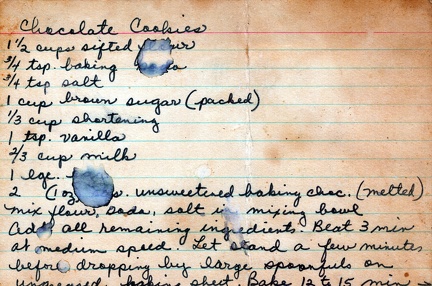 Chocolate Cookies
1 1/2 cups sifted
3/4 tsp. baking
3/4 tsp salt
1 cup brown sugar (packed)
1/3 cup shortening
1 tsp. vanilla
2/3 cup milk
1 lge.
2 (1 oz. unsweetened baking choc. (melted)
mix flour, soda, salt in mixing bowl
Add all remaining ingredients. Beat 3 min
at medium speed. Let stand a few minutes
before dropping by large spoonfuls on
ungreased baking sheet. Bake 12 to 15 min →